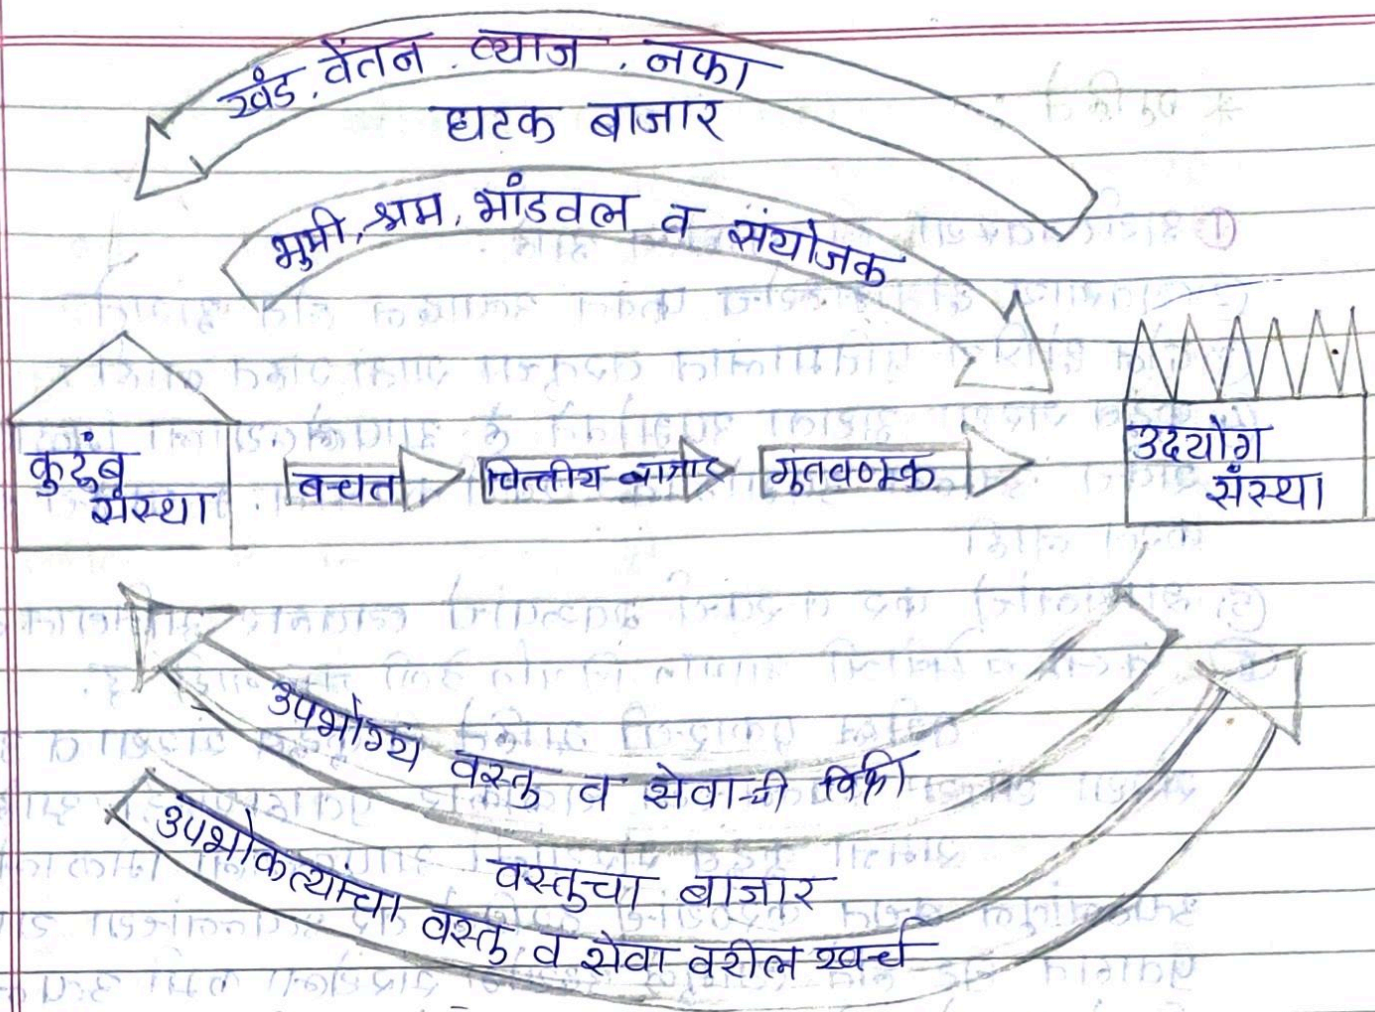 खंड, वेतन, व्याज, नफा
घटक बाजार
भुमी, श्रम, भांडवल व संयोजक
कुटुंब
संस्था
बचत
वित्तीय बाजार
गुतवणूक
उदयोग
संस्था
उपभोग्य वस्तु व सेवाची विक्री
वस्तुचा बाजार
उपभोकत्यांचा वस्तु व सेवा वरील खर्च